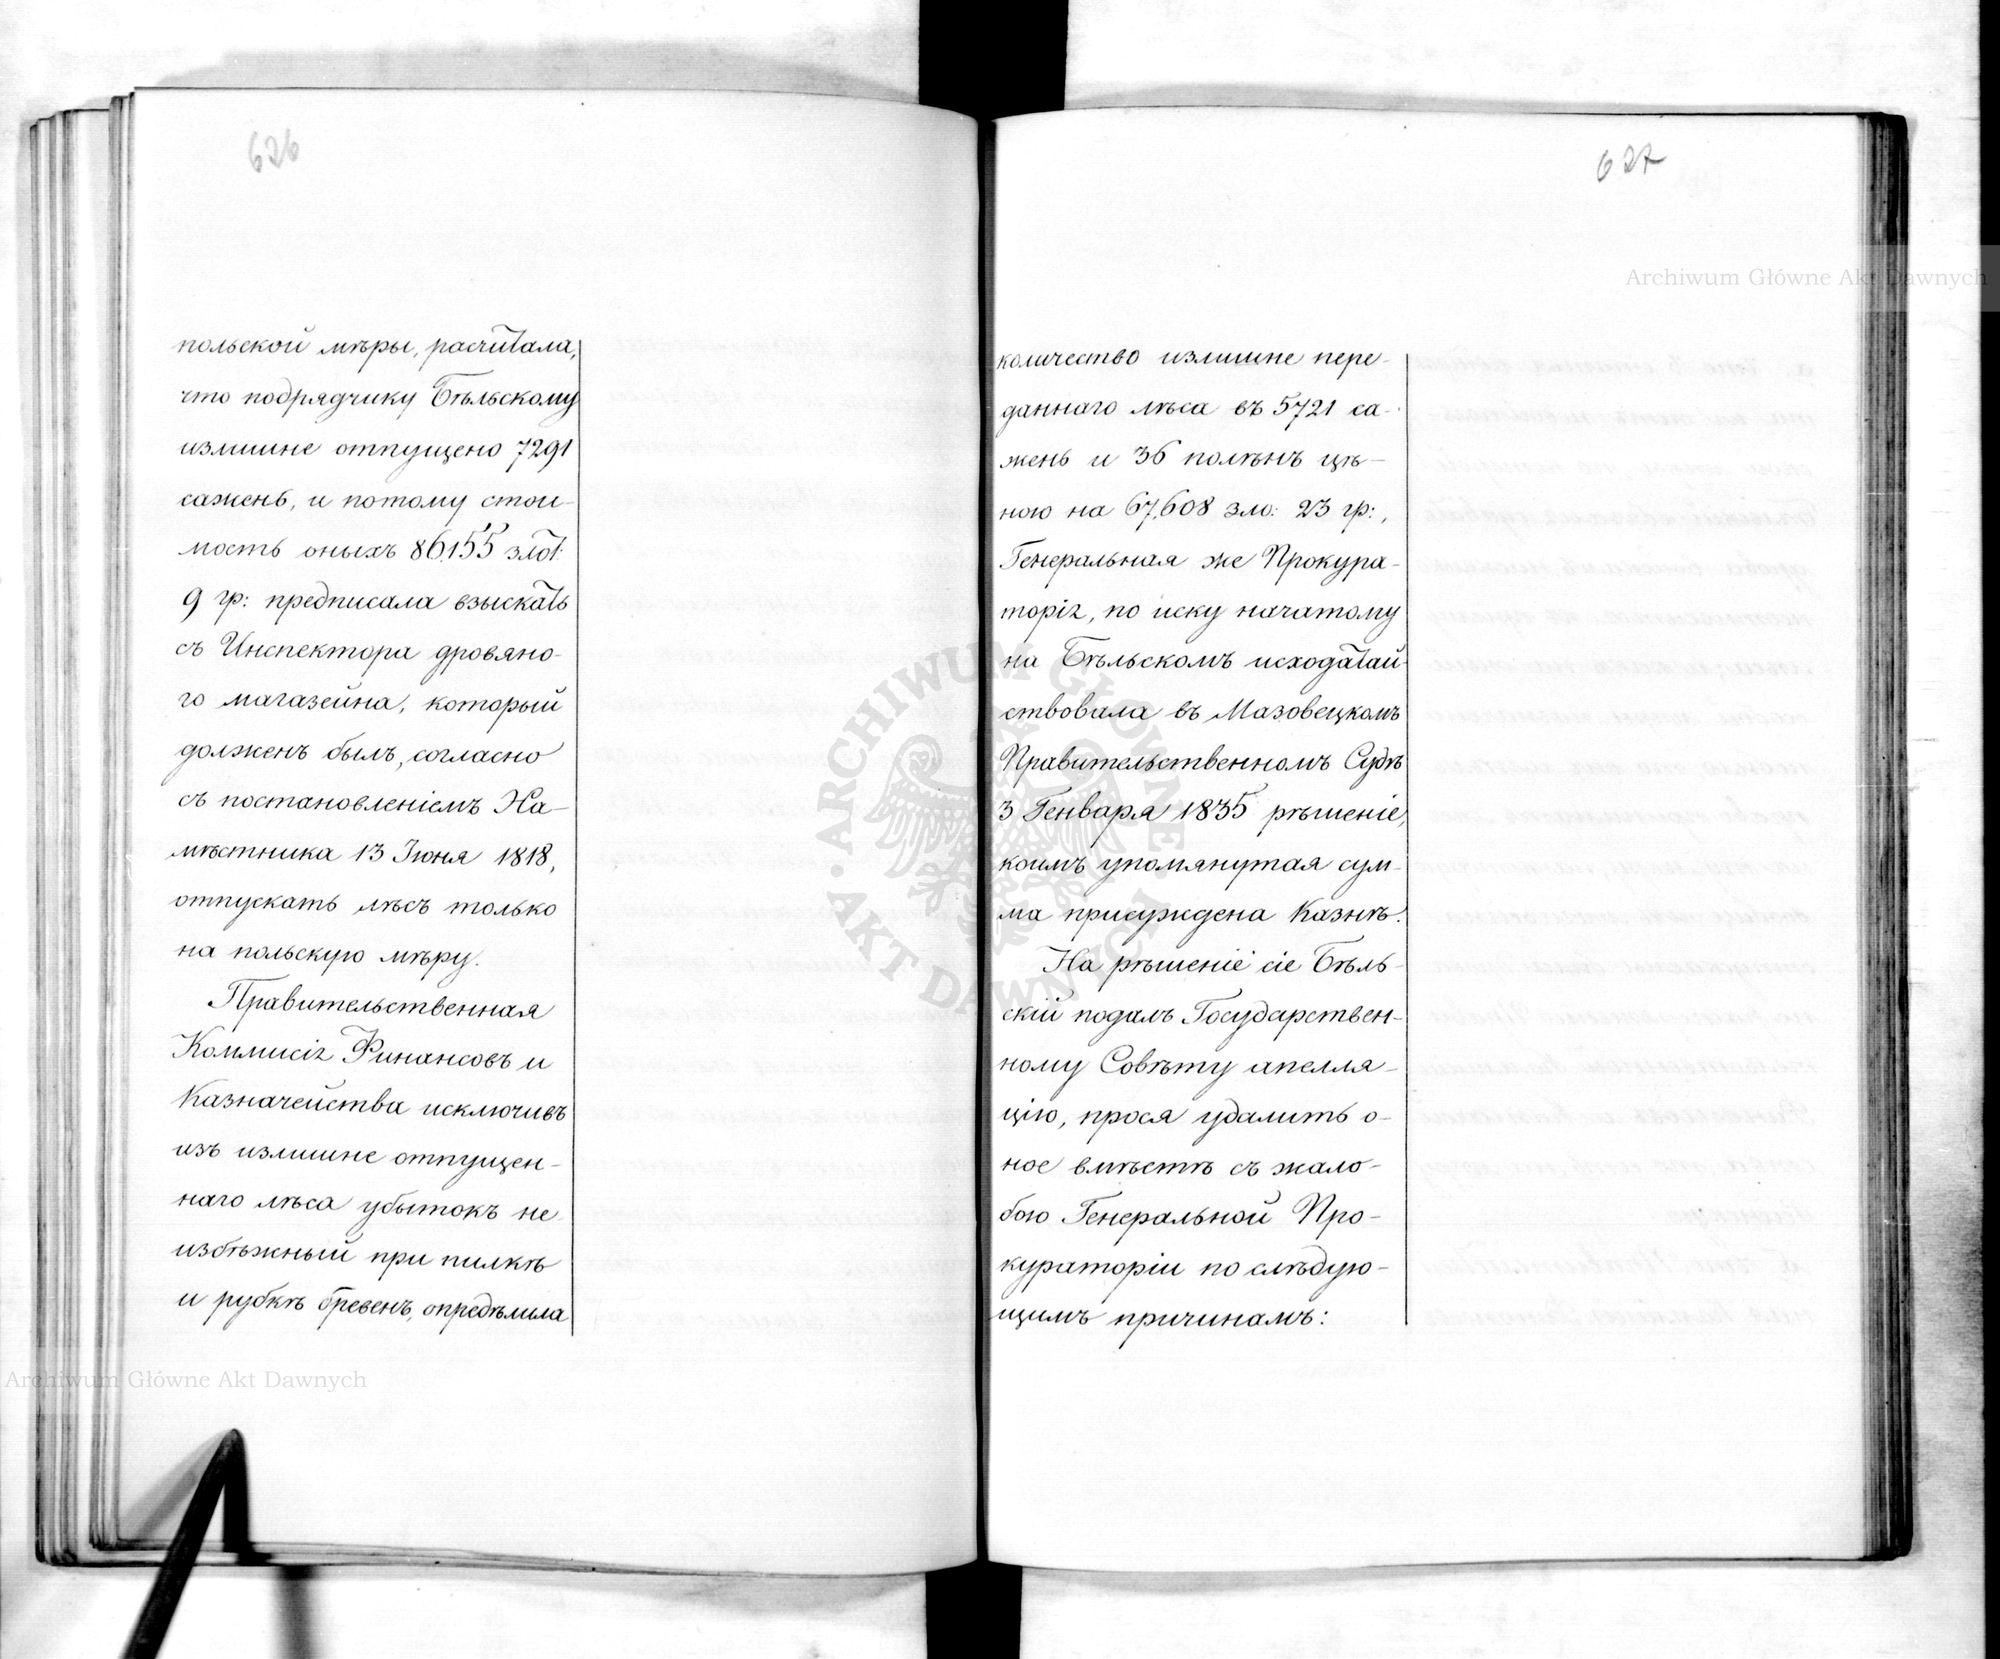 626
польской мѣры, расчитала,
что подрядчику Бѣльскому
излишне отпущено 7291
сажень, и потому стои-
мость оныхъ 86,155 злот:
9 гр: предписала взыскать
съ Инспектора дровяно-
го магазейна, который
долженъ былъ, согласно
съ постановленіемъ На-
мѣстника 13 Іюня 1818,
отпускать лѣсъ только
на польскую мѣру.
Правительственная
Коммисія Финансовъ и
Казначейства исключивъ
изъ излишне отпущен-
наго лѣса убытокъ не
избѣжный при пилкѣ
и рубкѣ бревенъ, опредѣлила
627
количество излишне пере-
даннаго лѣса въ 5721 са-
жень и 36 полѣнъ цѣ-
ною на 67,608 зло: 23 гр:,
Генеральная же Прокура-
торія, по иску начатому
на Бѣльскомъ исходатай-
ствовала въ Мазовецкомъ
Правительственномъ Судѣ
3 Генваря 1835 рѣшеніе,
коимъ упомянутая сум-
ма присуждена Казнѣ.
На рѣшеніе сіе Бѣль-
скій подалъ Государствен-
ному Совѣту апелля-
цію, прося удалить о-
ное вмѣстѣ съ жало-
бою Генеральной Про-
кураторіи по слѣдую-
щимъ причинамъ:
Archiwum Główne Akt Dawnych
Archiwum Główne Akt Dawnych
ARCHIWUM GŁÓWNE AKT DAWNYCH